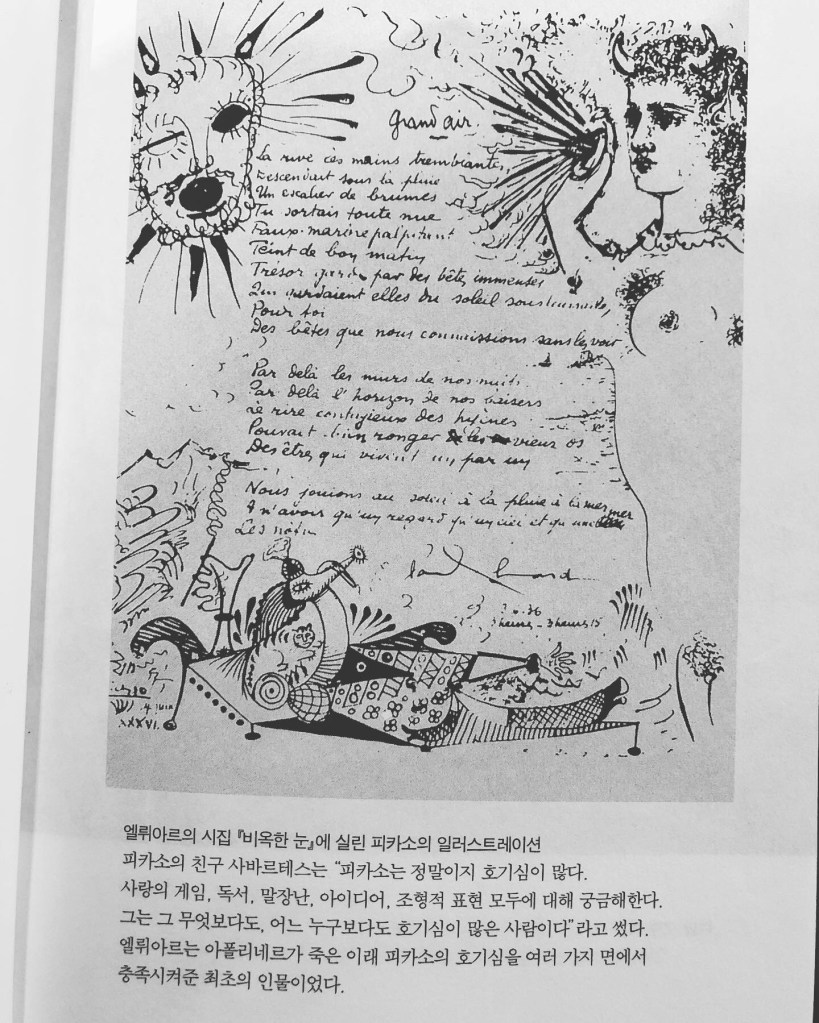 Grand air
La rive les mains tremblantes
Descendait sous la pluie
Un escalier de brumes
Tu sortais toute nue
Faux marbre palpitant
Teint de bon matin
Trésor gardé par des bêtes immenses
Qui gardaient elles du soleil sous leurs ailes
Pour toi
Des bêtes que nous connaissions sans les voir
Par delà les murs de nos nuits
Par delà l'horizon de nos baisers
Le rire contagieux des hyènes
Pouvait bien ronger les vieux os
Des êtres qui vivent un par un
Nous jouions au soleil à la pluie à la mer
A n'avoir qu'un regard qu'un ciel et qu'une mer
Les nôtres
36
3 heures - 3 heures 15
4 juin
XXXVI.
엘뤼아르의 시집 『비옥한 눈』에 실린 피카소의 일러스트레이션
피카소의 친구 사바르테스는 “피카소는 정말이지 호기심이 많다.
사랑의 게임, 독서, 말장난, 아이디어, 조형적 표현 모두에 대해 궁금해한다.
그는 그 무엇보다도, 어느 누구보다도 호기심이 많은 사람이다”라고 썼다.
엘뤼아르는 아폴리네르가 죽은 이래 피카소의 호기심을 여러 가지 면에서
충족시켜준 최초의 인물이었다.